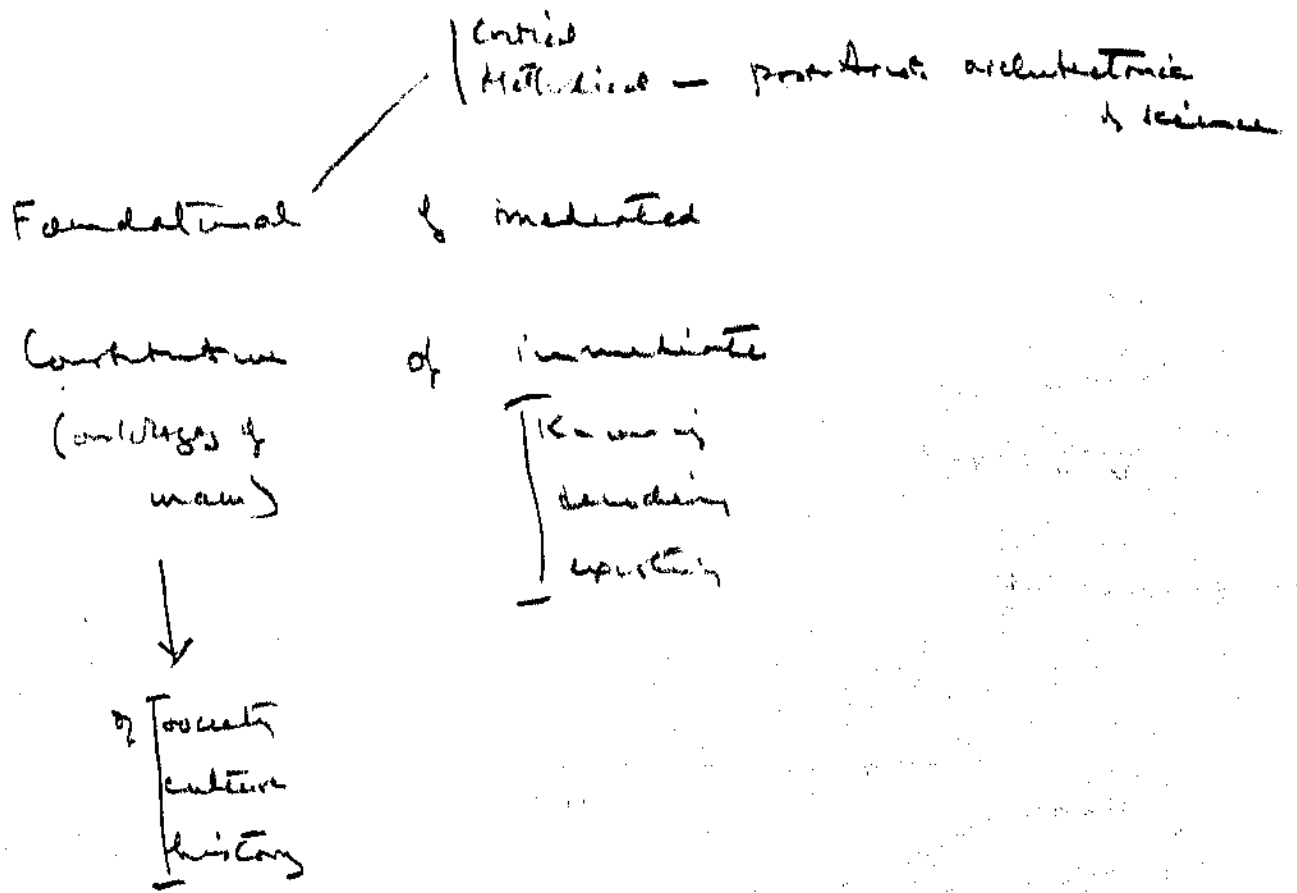 Critical
Methodical — post Arist. architectonic
of science
Foundational of mediated
Constitutive of immediate
( of
man)
Knowing
existing
of society
culture
history